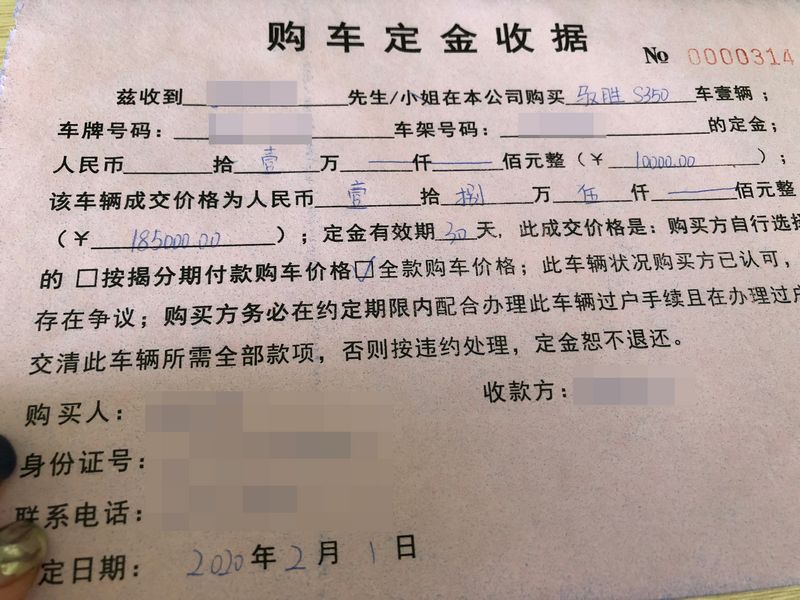 购车定金收据
No 0000314
兹收到 先生/小姐在本公司购买 驭胜 S350 车壹辆；
车牌号码： 车架号码： 的定金；
人民币 拾 壹 万 仟 佰元整（¥ 10000.00 ）；
该车辆成交价格为人民币 壹 拾 捌 万 伍 仟 佰元整
（¥ 185000.00 ）；定金有效期 30 天，此成交价格是：购买方自行选择
的 □按揭分期付款购车价格 ☑全款购车价格；此车辆状况购买方已认可，
存在争议；购买方务必在约定期限内配合办理此车辆过户手续且在办理过户
交清此车辆所需全部款项，否则按违约处理，定金恕不退还。
收款方：
购买人：
身份证号：
联系电话：
定日期： 2020 年 2 月 1 日